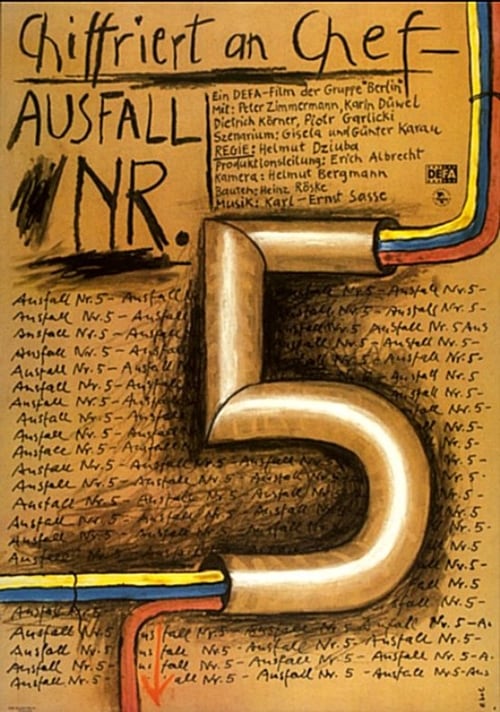 Chiffriert an Chef-
AUSFALL
NR.
5
Ein DEFA-Film der Gruppe "Berlin"
Mit: Peter Zimmermann, Karin Düwel
Dietrich Körner, Piotr Garlicki
Szenarium: Gisela und Günter Karau
REGIE: Helmut Dziuba
Produktionsleitung: Erich Albrecht
Kamera: Helmut Bergmann
Bauten: Heinz Röske
Musik: Karl-Ernst Sasse
DEFA
Ausfall Nr.5- Ausfall Nr.5- Ausfall Nr.5-
Ausfall Nr.5- Ausfall Nr.5- Ausfall Nr.5-
Ausfall Nr.5- Ausfall Nr.5 Ausfall Nr.5 Aus
Ausfall Nr.5- Ausfall Nr.5- Ausfall Nr.5-
Ausfall Nr.5- Ausfall Nr.5-
Ausfall Nr.5- Ausfall Nr.5
Ausfall Nr.5- Ausfall Nr.5-
Ausfall Nr.5- Ausfall Nr.5-
Ausfall Nr.5- Ausfall Nr.5-
Ausfall Nr.5- Ausfall Nr.5-
Ausfall Nr.5- Ausfall Nr.5-
Ausfall Nr.5- Ausfall Nr.5-
Ausfall Nr.5- Ausfall Nr.5-
Ausfall Nr.5- Ausfall Nr.5-
Ausfall Nr.5- Ausfall Nr.5-
Ausfall Nr.5
Ausfall Nr.5- Ausfall Nr.5- Ausfall Nr.5-A
Ausfall Nr.5- Ausfall Nr.5- Ausfall Nr.5-
Ausfall Nr.5- Ausfall Nr.5- Ausfall Nr.5-A
Ausfall Nr.5- all Nr.5- Ausfall Nr.5- Aus